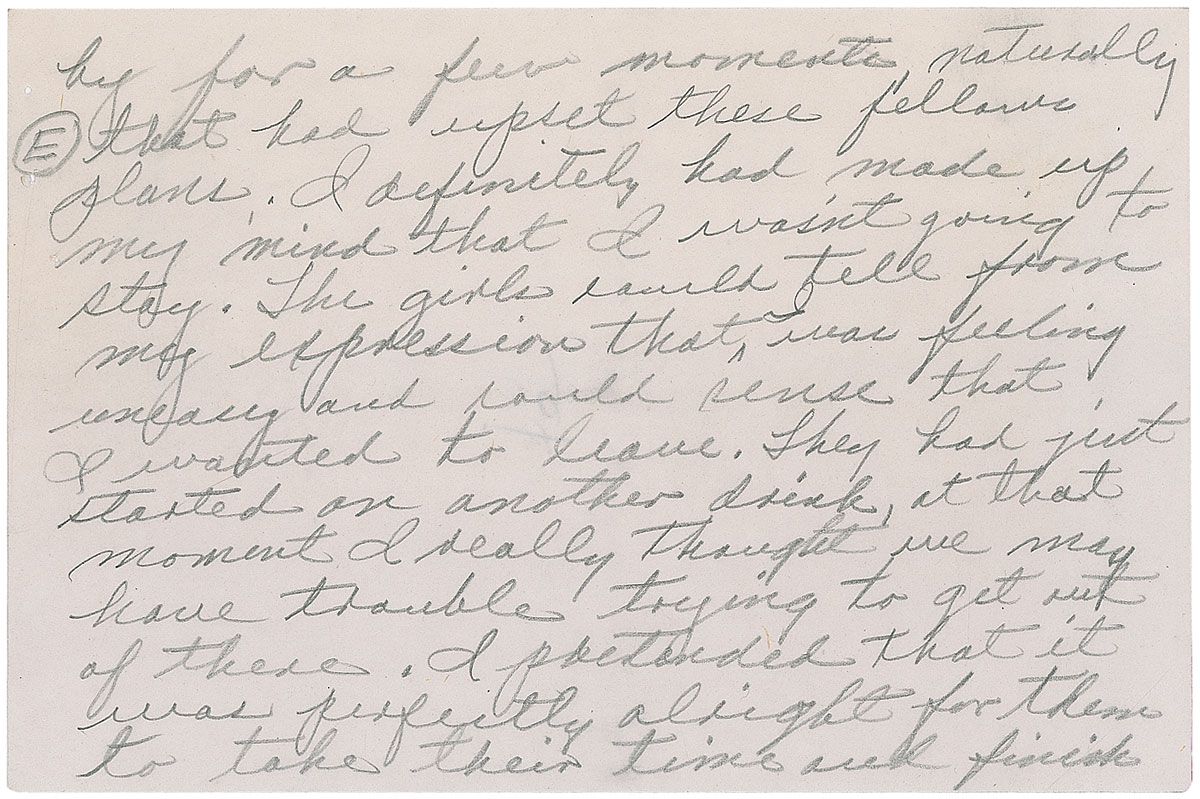 by for a few moments, naturally
(E) that had upset these fellows
plans. I definitely had made up
my mind that I wasn't going to
stay. The girls could tell from
my expression that, I was feeling
uneasy and could sense that
I wanted to leave. They had just
started on another drink, at that
moment I really thought we may
have trouble trying to get out
of there. I pretended that it
was perfectly alright for them
to take their time and finish